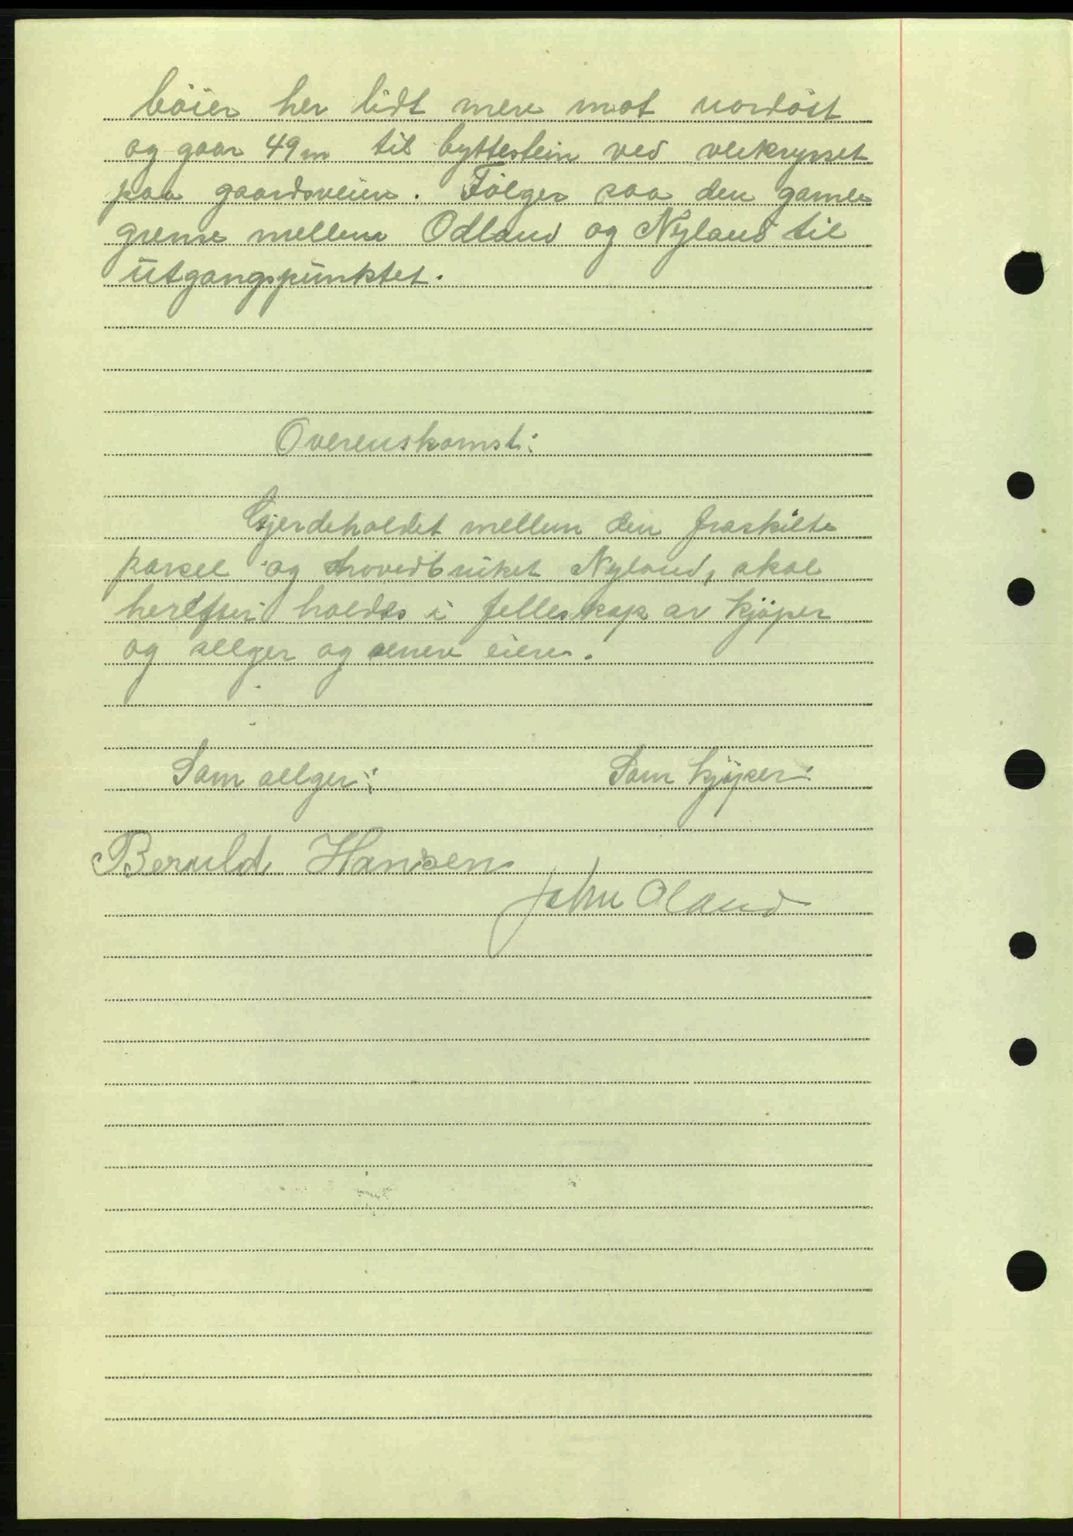 böier her lidt mere mot nordöst
og gaar 49m til byttestein ved veikrysset
paa gaardsveien. Følger saa den gamle
grense mellem Odland og Nyland til
utgangspunktet.
Overenskomst:
Gjerdeholdet mellem den fraskilte
parsel og hovedbruket Nyland, skal
herefter holdes i felleskap av kjøper
og sellger og senere eiere.
Som sellger: Som kjøper:
Beruld Hansen
John Oland